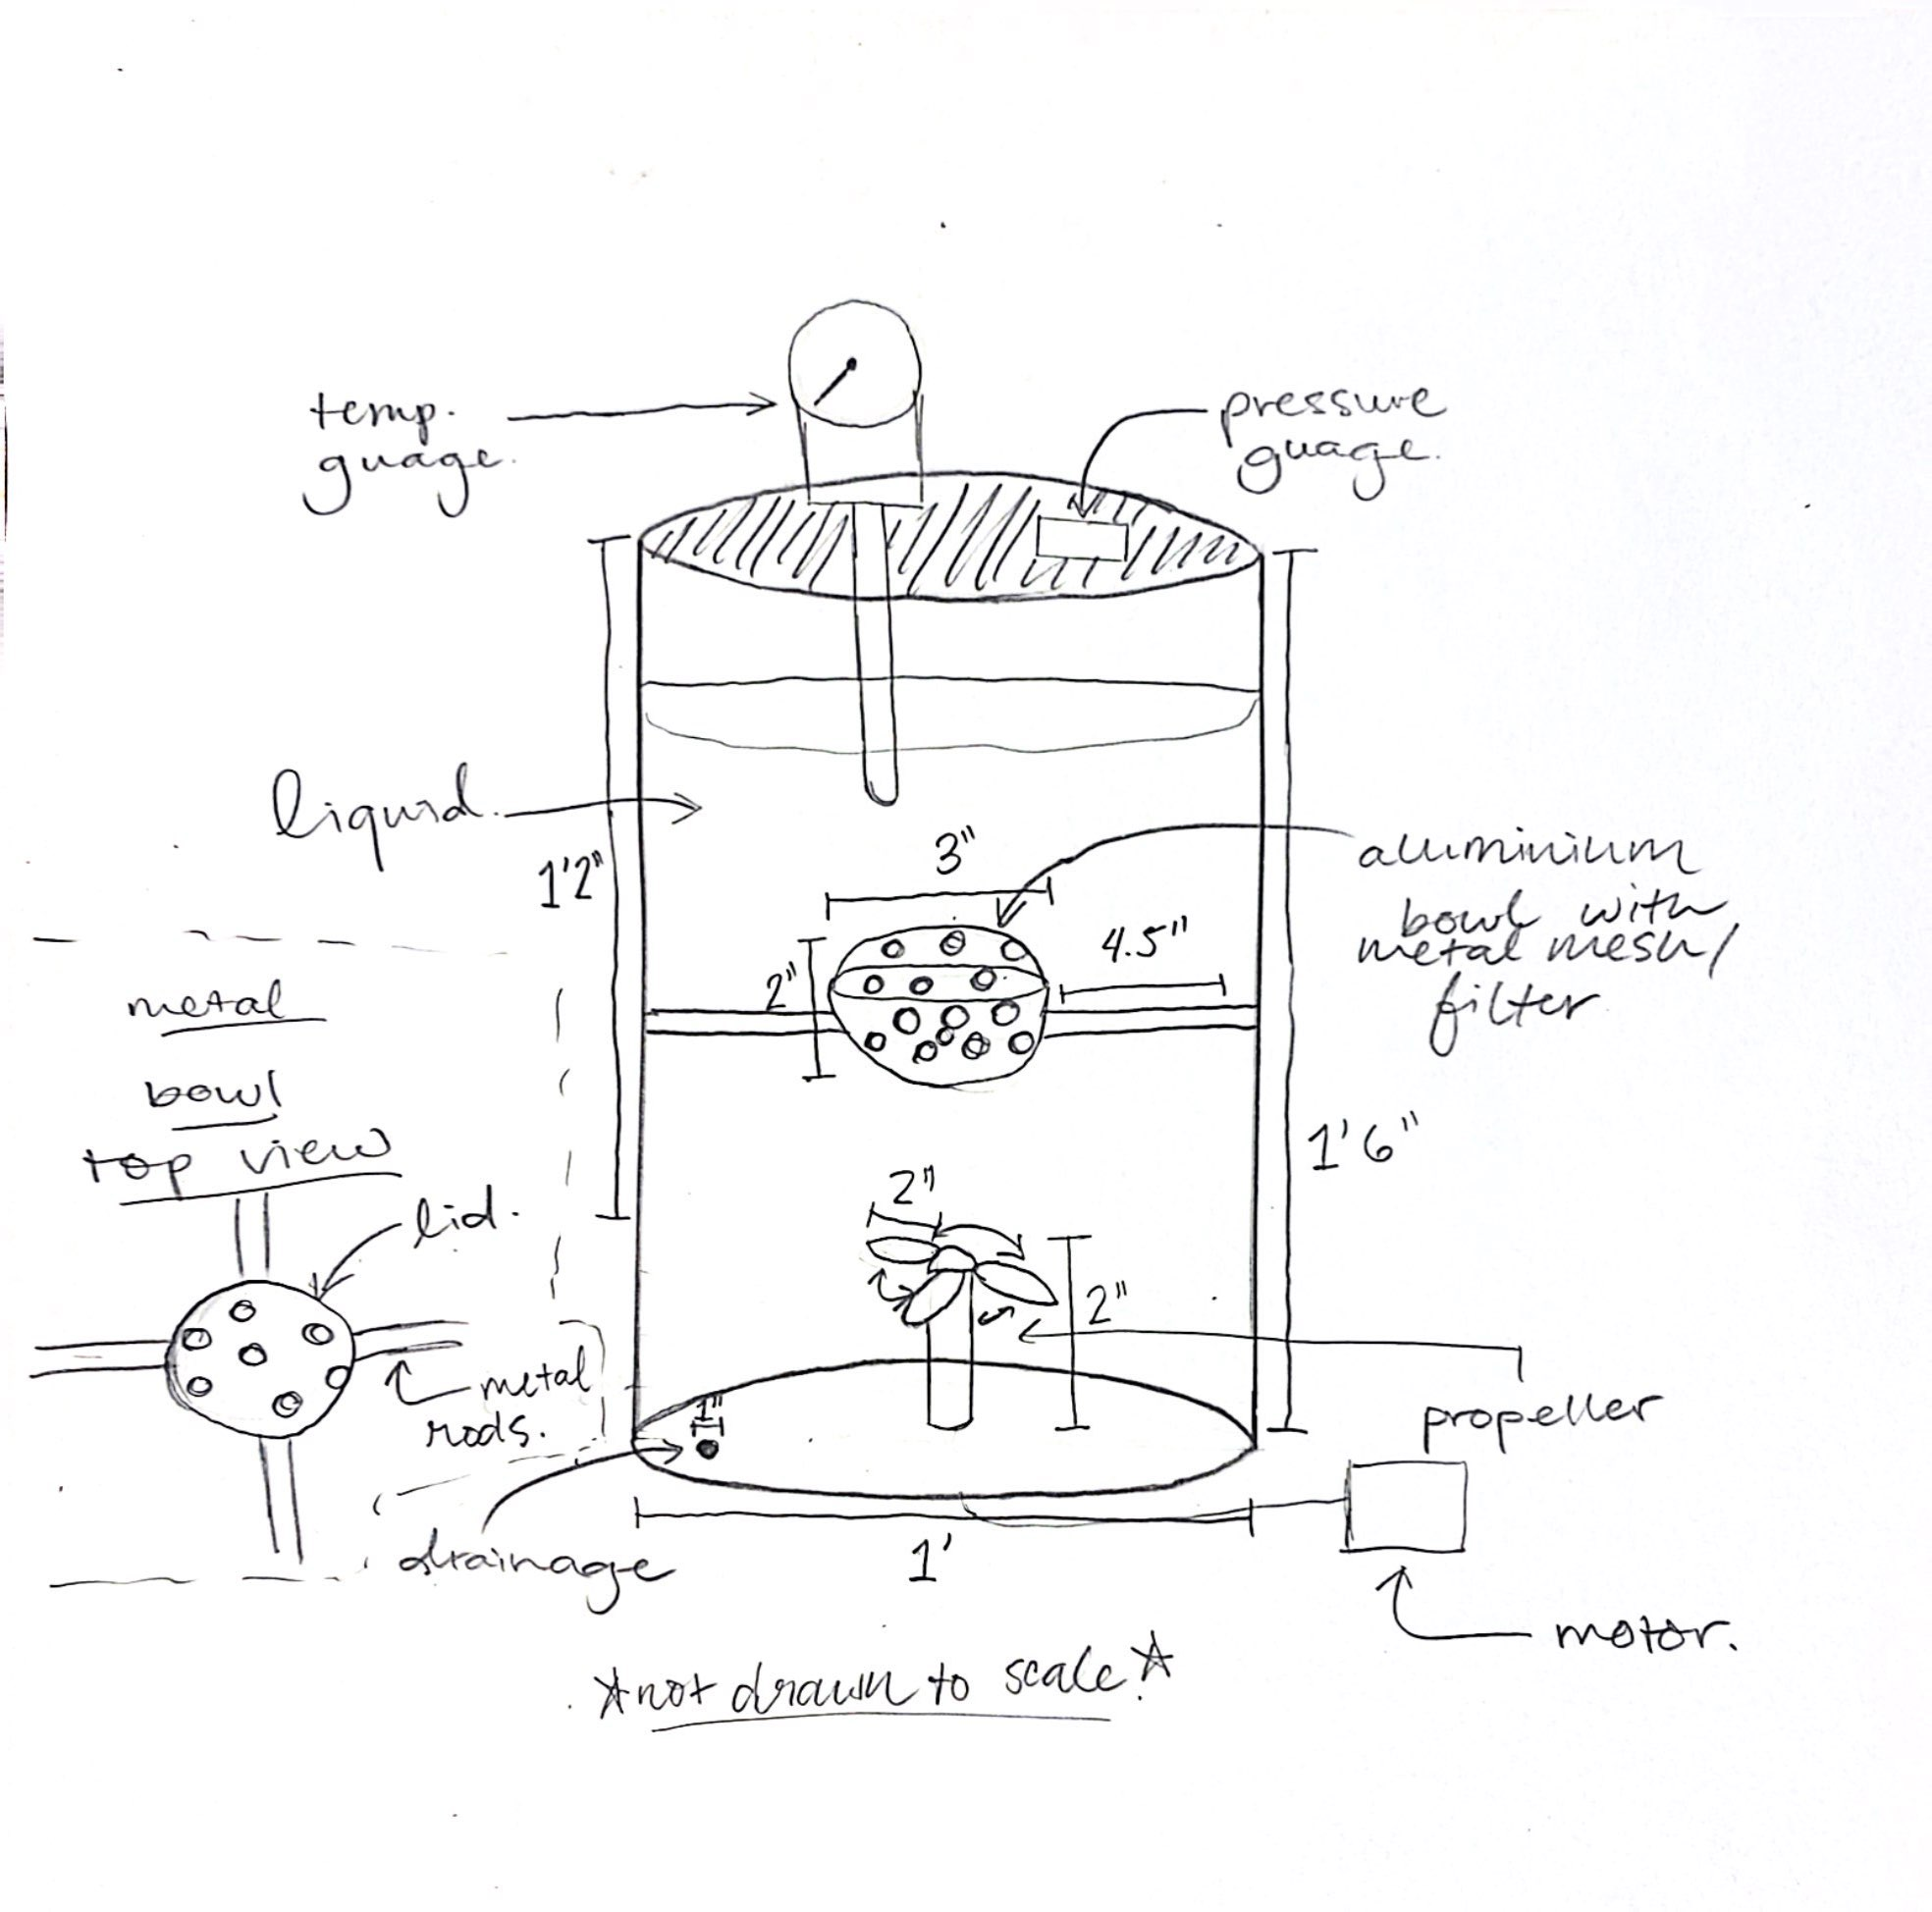 temp.
guage.
pressure
guage.
liquid.
1'2"
3"
aluminium
bowl with
metal mesh/
filter
4.5"
2"
metal
bowl
top view
lid.
metal
rods.
1'6"
2"
2"
propeller
1"
drainage
1'
motor.
*not drawn to scale.*